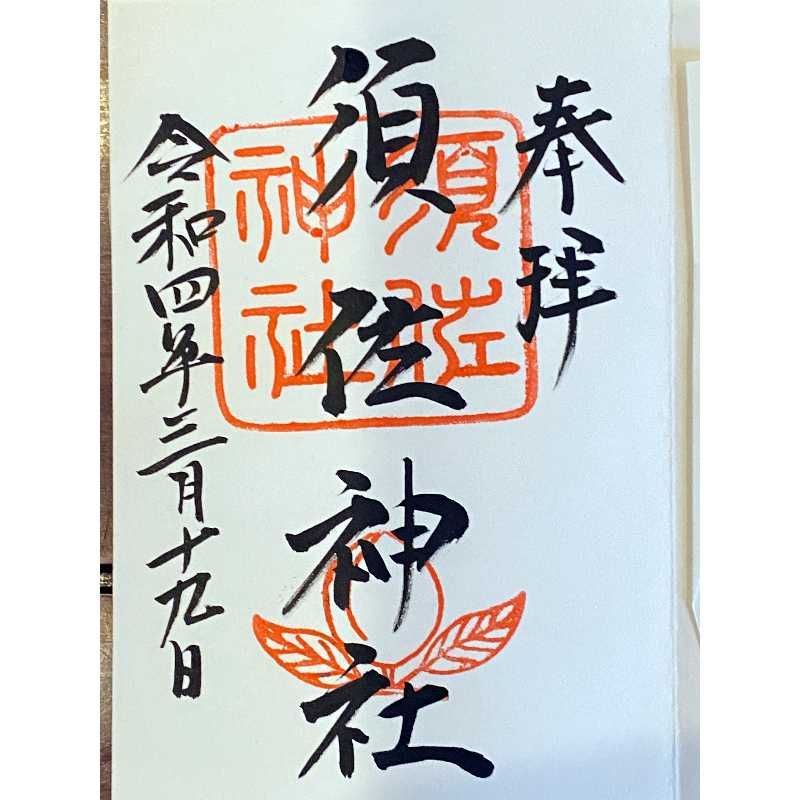 奉拝
須佐神社
須佐
神社
令和四年三月十九日